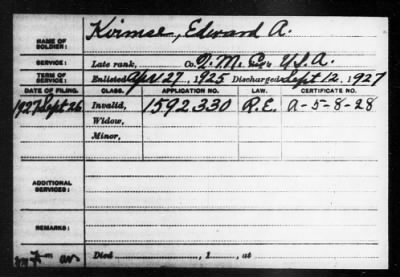 NAME OF SOLDIER: Kirmse, Edward A.
SERVICE: Late rank, Co. Q. M. Corps U.S.A.
TERM OF SERVICE: Enlisted Apr 27, 1925 Discharged Sept 12, 1927
DATE OF FILING. CLASS. APPLICATION NO. LAW. CERTIFICATE NO.
1927 Sept 26 Invalid, 1592330 R.E. A-5-8-28
Widow,
Minor,
ADDITIONAL SERVICES:
REMARKS:
Died , 1 , at